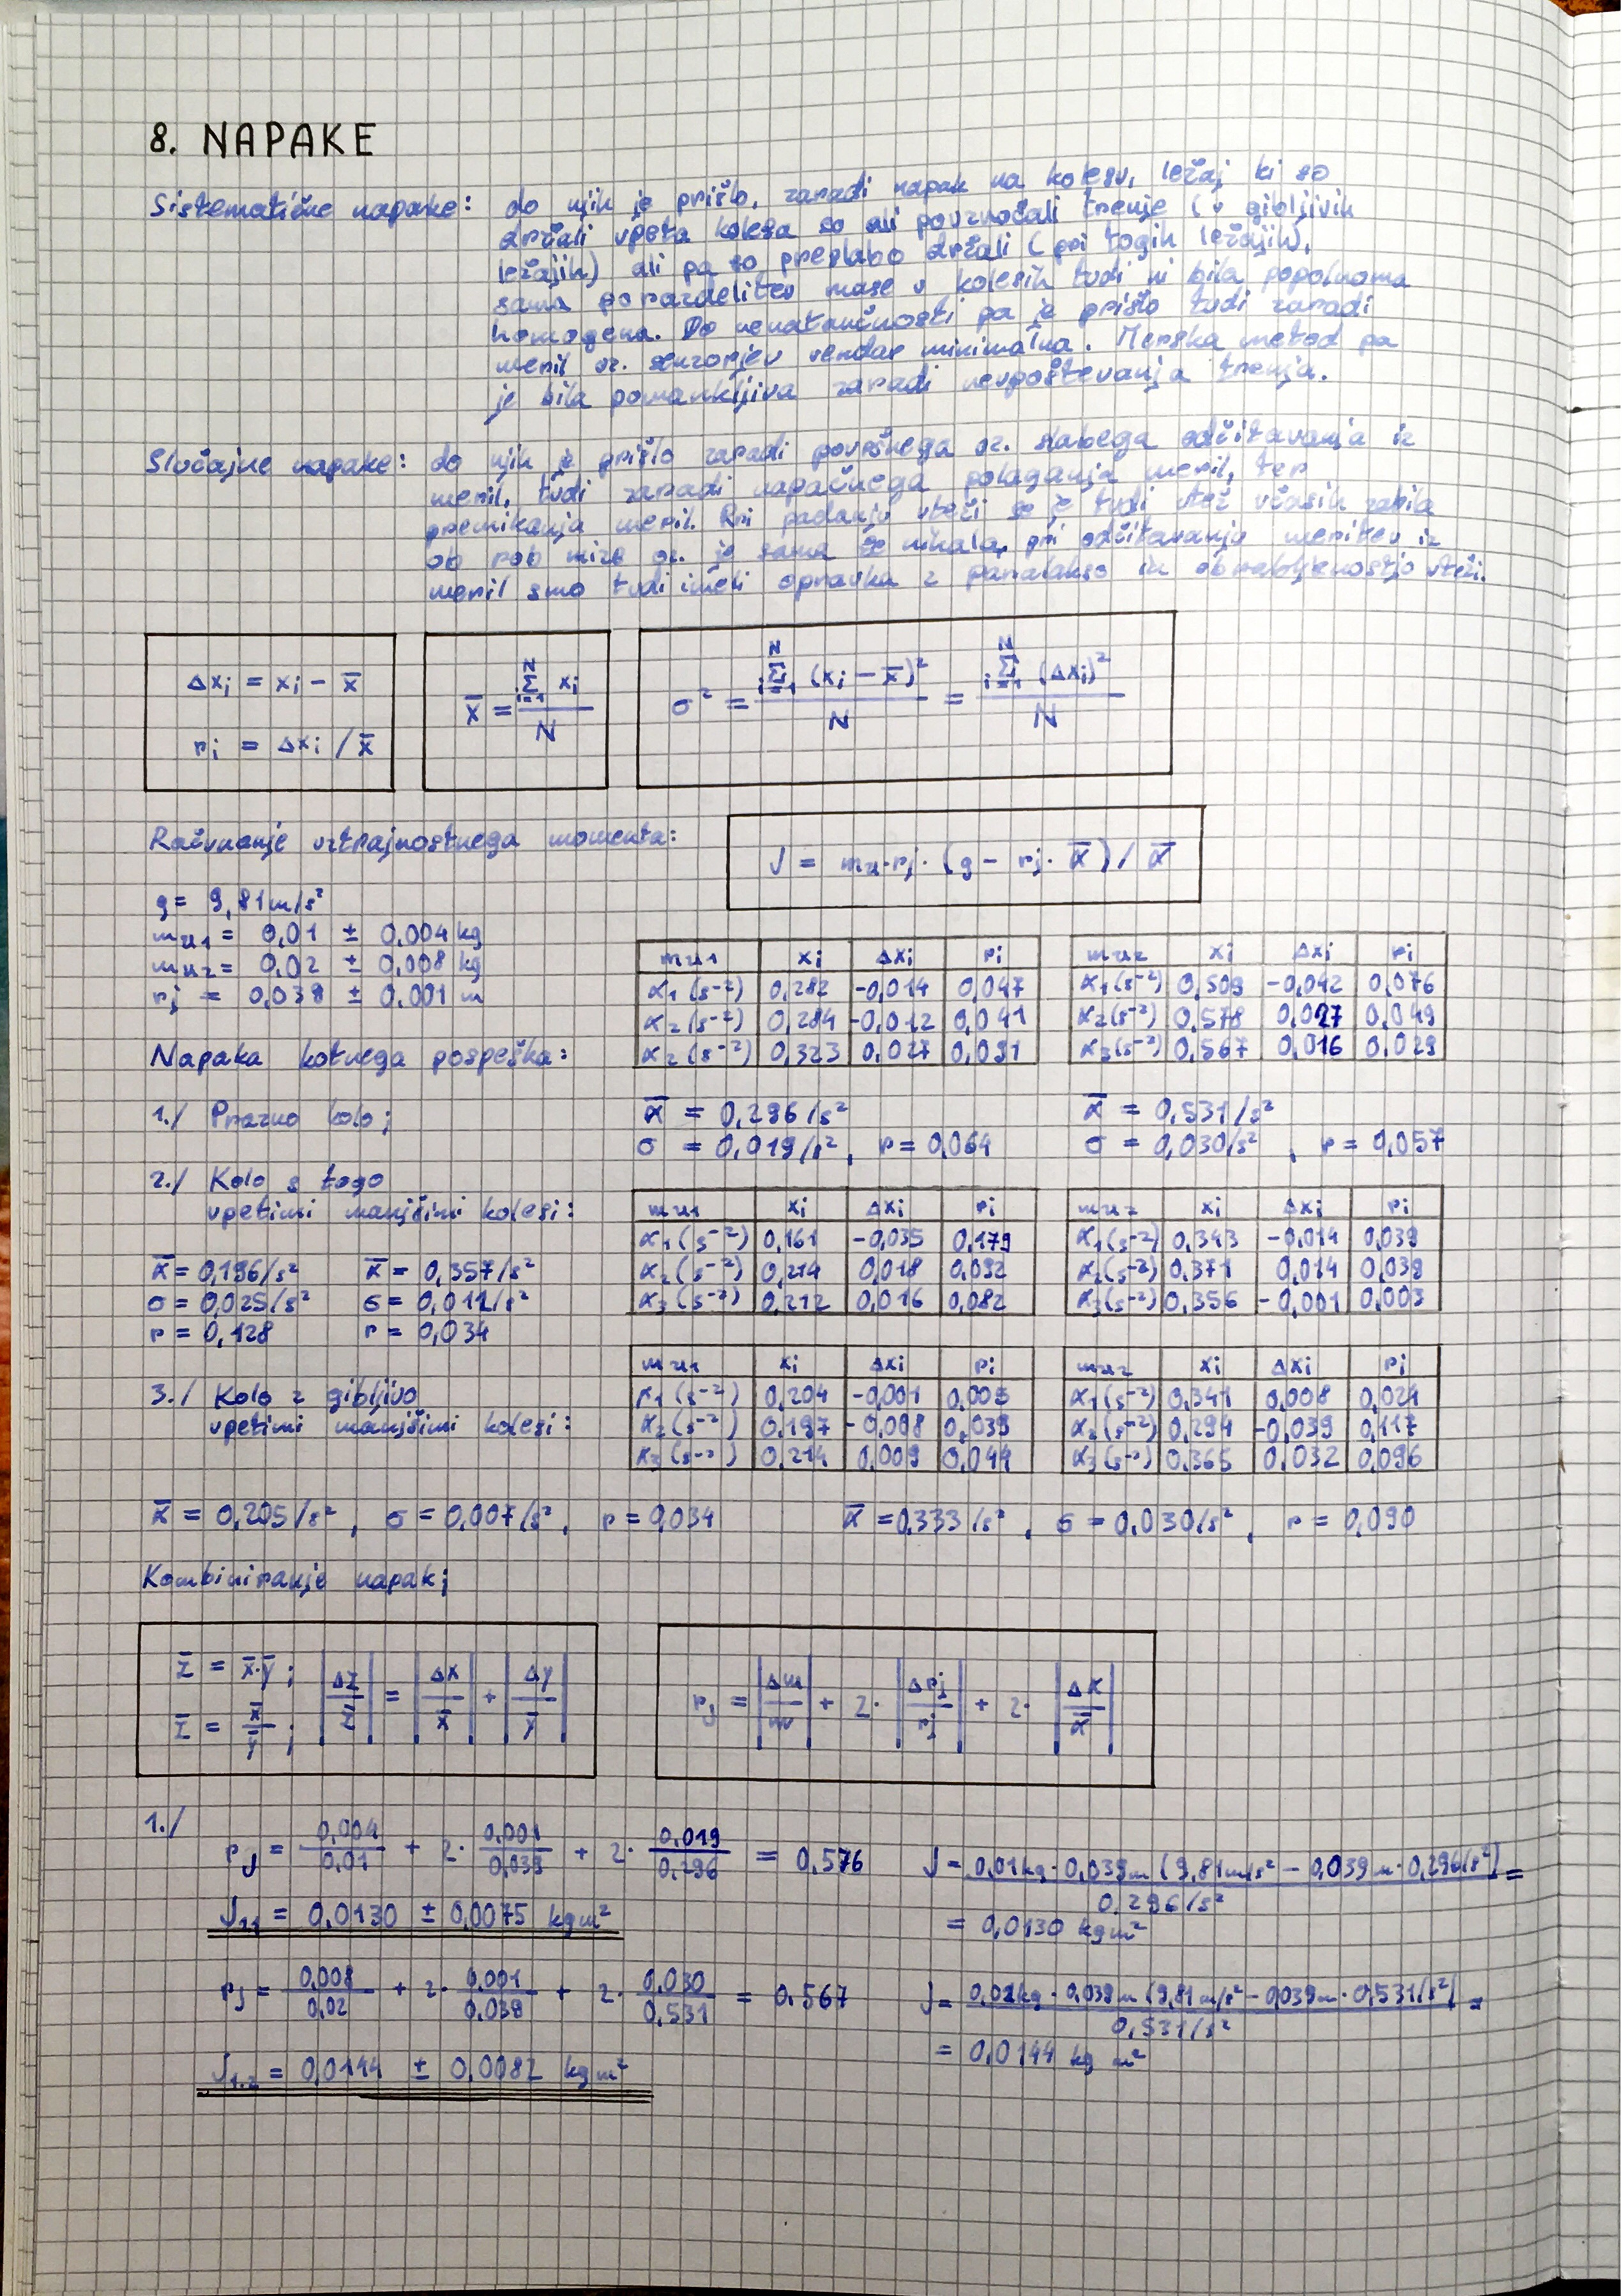 8. NAPAKE
Sistematične napake: do njih je prišlo, zaradi napak na kolesu, ležaj ki so
držali vpeta kolesa so ali povzročali trenje (v gibljivih
ležajih) ali pa so preslabo držali (pri togih ležajih),
sama porazdelitev mase v kolesih tudi ni bila popolnoma
homogena. Do nenatančnosti pa je prišlo tudi zaradi
meril oz. senzorjev vendar minimalna. Merska metod pa
je bila pomankljiva zaradi neupoštevanja trenja.
Slučajne napake: do njih je prišlo zaradi površnega oz. slabega odčitavanja iz
meril, tudi zaradi napačnega polaganja meril, ter
premikanja meril. Pri padanju uteži se je tudi utež včasih zabila
ob rob mize oz. je sama še nihala, pri odčitavanju meritev iz
meril smo tudi imeli opravka z paralakso in obrabljenostjo uteži.
Δxi = xi - x̄
ri = Δxi / x̄
x̄ = Σ(i=1, N) xi / N
σ² = Σ(i=1, N) (xi - x̄)² / N = Σ(i=1, N) (Δxi)² / N
Računanje vztrajnostnega momenta:
J = mu · rj · (g - rj · ᾱ) / ᾱ
g = 9,81 m/s²
mu1 = 0,01 ± 0,004 kg
mu2 = 0,02 ± 0,008 kg
rj = 0,039 ± 0,001 m
mu1 xi Δxi ri
α1 (s⁻²) 0,282 -0,014 0,047
α2 (s⁻²) 0,284 -0,012 0,041
α2 (s⁻²) 0,323 0,027 0,091
mu2 xi Δxi ri
α1 (s⁻²) 0,509 -0,042 0,076
α2 (s⁻²) 0,578 0,027 0,049
α3 (s⁻²) 0,567 0,016 0,029
Napaka kotnega pospeška:
1./ Prazno kolo;
ᾱ = 0,296 /s²
σ = 0,019 /s², r = 0,064
ᾱ = 0,531 /s²
σ = 0,030 /s², r = 0,057
2./ Kolo s togo
vpetimi manjšimi kolesi:
ᾱ = 0,196 /s² ᾱ = 0,357 /s²
σ = 0,025 /s² σ = 0,012 /s²
r = 0,128 r = 0,034
mu1 xi Δxi ri
α1 (s⁻²) 0,161 -0,035 0,179
α2 (s⁻²) 0,214 0,018 0,092
α3 (s⁻²) 0,212 0,016 0,082
mu2 xi Δxi ri
α1 (s⁻²) 0,343 -0,014 0,039
α2 (s⁻²) 0,371 0,014 0,039
α3 (s⁻²) 0,356 -0,001 0,003
3./ Kolo z gibljivo
vpetimi manjšimi kolesi:
mu1 xi Δxi ri
α1 (s⁻²) 0,204 -0,001 0,005
α2 (s⁻²) 0,197 -0,008 0,039
α3 (s⁻²) 0,214 0,009 0,044
mu2 xi Δxi ri
α1 (s⁻²) 0,341 0,008 0,024
α2 (s⁻²) 0,294 -0,039 0,117
α3 (s⁻²) 0,365 0,032 0,096
ᾱ = 0,205 /s², σ = 0,007 /s², r = 0,034 ᾱ = 0,333 /s², σ = 0,030 /s², r = 0,090
Kombiniranje napak;
z̄ = x̄·ȳ; |Δz/z̄| = |Δx/x̄| + |Δy/ȳ|
z̄ = x̄/ȳ;
rJ = |Δm/m| + 2· |Δrj/rj| + 2· |Δα/ᾱ|
1./
rJ = 0,004/0,01 + 2· 0,001/0,039 + 2· 0,019/0,296 = 0,576
J = 0,01 kg · 0,039 m (9,81 m/s² - 0,039 m · 0,296 /s²) / 0,296 /s² =
= 0,0130 kg m²
J1.1 = 0,0130 ± 0,0075 kg m²
rJ = 0,008/0,02 + 2· 0,001/0,039 + 2· 0,030/0,531 = 0,567
J = 0,02 kg · 0,039 m (9,81 m/s² - 0,039 m · 0,531 /s²) / 0,531 /s² =
= 0,0144 kg m²
J1.2 = 0,0144 ± 0,0082 kg m²